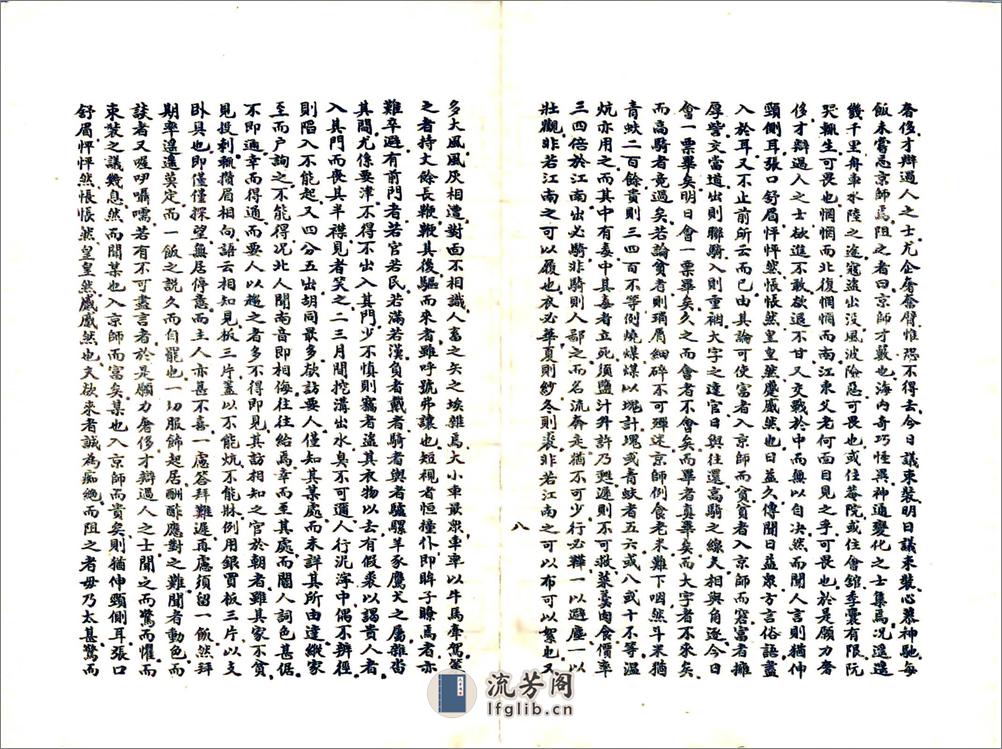 奢侈才辯過人之士尤企奮奮臂惟恐不得去今日議束裝明日議束裝心慕神馳每
飯未嘗忘京師焉阻之者曰京師才藪也海内奇巧怪異神通變化之士集焉况迢遥
幾千里舟車水陸之逺寇盗出没風波險惡可畏也或住菴院或住會館季囊有限阮
哭輒生可畏也惘惘而北復惘惘而南江東父老何面目見之乎可畏也於是願力奢
侈才辯過人之士欲進不敢欲退不甘又交戰於中而無以自决然而聞人言則猶伸
頸側耳張口舒眉怦怦然悵悵然皇皇然慼慼然也日益久傳聞日益衆方言俗語盡
入於耳又不止前所云而已由其論可使富者入京師而貧貧者入京師而窘富者擁
厚訾交當道出則聯騎入則重裀大字之達官日與往還高騎之線夫相與角逐今日
會一票畢矣明日會一票畢矣久之而會者不會矣而畢者真畢矣而大字者不來矣
而高騎者竟過矣若論貧者則瑣屑細碎不可殫述京師例食老米難下咽然斗米猶
青蚨二百餘貴則三四百不等例燒煤煤以塊計塊或青蚨者五六或八或十不等溫
炕亦用之而其中有毒中其毒者立死須鹽汁升許乃甦遲則不可救菜羹肉食價率
三四倍於江南出必騎非騎則人鄙之而名流奔走猶不可少行必韡一以避塵一以
壯觀非若江南之可以履也衣必華夏則紗冬則裘非若江南之可以布可以絮也又
八
多大風風灰相遭對面不相識人畜之矢之埃雜焉大小車最衆車車以牛馬牽駕
之者持丈餘長鞭鞭其後驅而來者雖呼號弗讓也短視者恒撞仆即眸子瞭焉者亦
難卒避有前門者若官若民若滿若漢負者戴者騎者輿者驢騾羊豕鷹犬之屬雜沓
其間尤係要津不得不出入其門少不慎則竊者盗其衣物以去有假裘以謁貴人者
入其門而喪其半襟見者笑之二三月間挖溝出水臭不可邇人行汎濘中偶不辨徑
則陷入不能起又四分五出胡同最多欲訪要人僅知其某處而未詳其所由達縱家
至而户詢之不能得况北人聞南音即相侮往往紿焉幸而至其處而閽人詞色甚倨
不即通幸而得通而要人以趨之者多不得即見其訪相知之官於朝者雖其家不貧
見投刺輒攢眉相向語云相知見板三片蓋以不能炕不能牀例用銀買板三片以支
卧具也即僅僅探望無居停意而主人亦甚不喜一慮答拜難遲再慮須留一飯然拜
期率遑遽莫定而一飯之説久而自罷也一切服飾起居酬酢應對之難聞者動色而
談者又喔咿囁嚅若有不可盡言者於是願力奢侈才辯過人之士聞之而驚而懼而
束裝之議幾息然而聞某也入京師而富矣某也入京師而貴矣則猶伸頸側耳張口
舒眉怦怦然悵悵然皇皇然慼慼然也夫欲來者誠為痴絶而阻之者毋乃太甚驚而
流芳阁
lfglib.cn